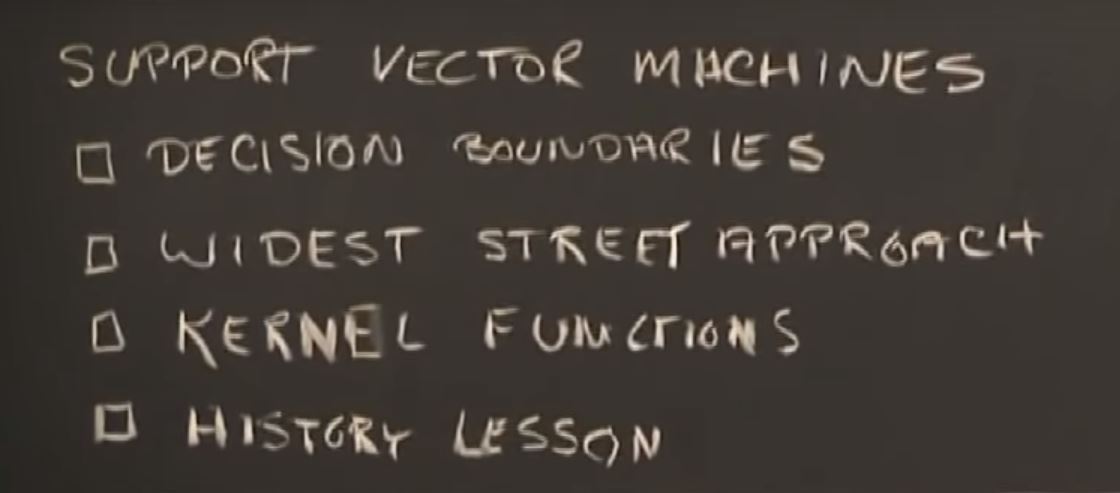 SUPPORT VECTOR MACHINES
□ DECISION BOUNDARIES
□ WIDEST STREET APPROACH
□ KERNEL FUNCTIONS
□ HISTORY LESSON